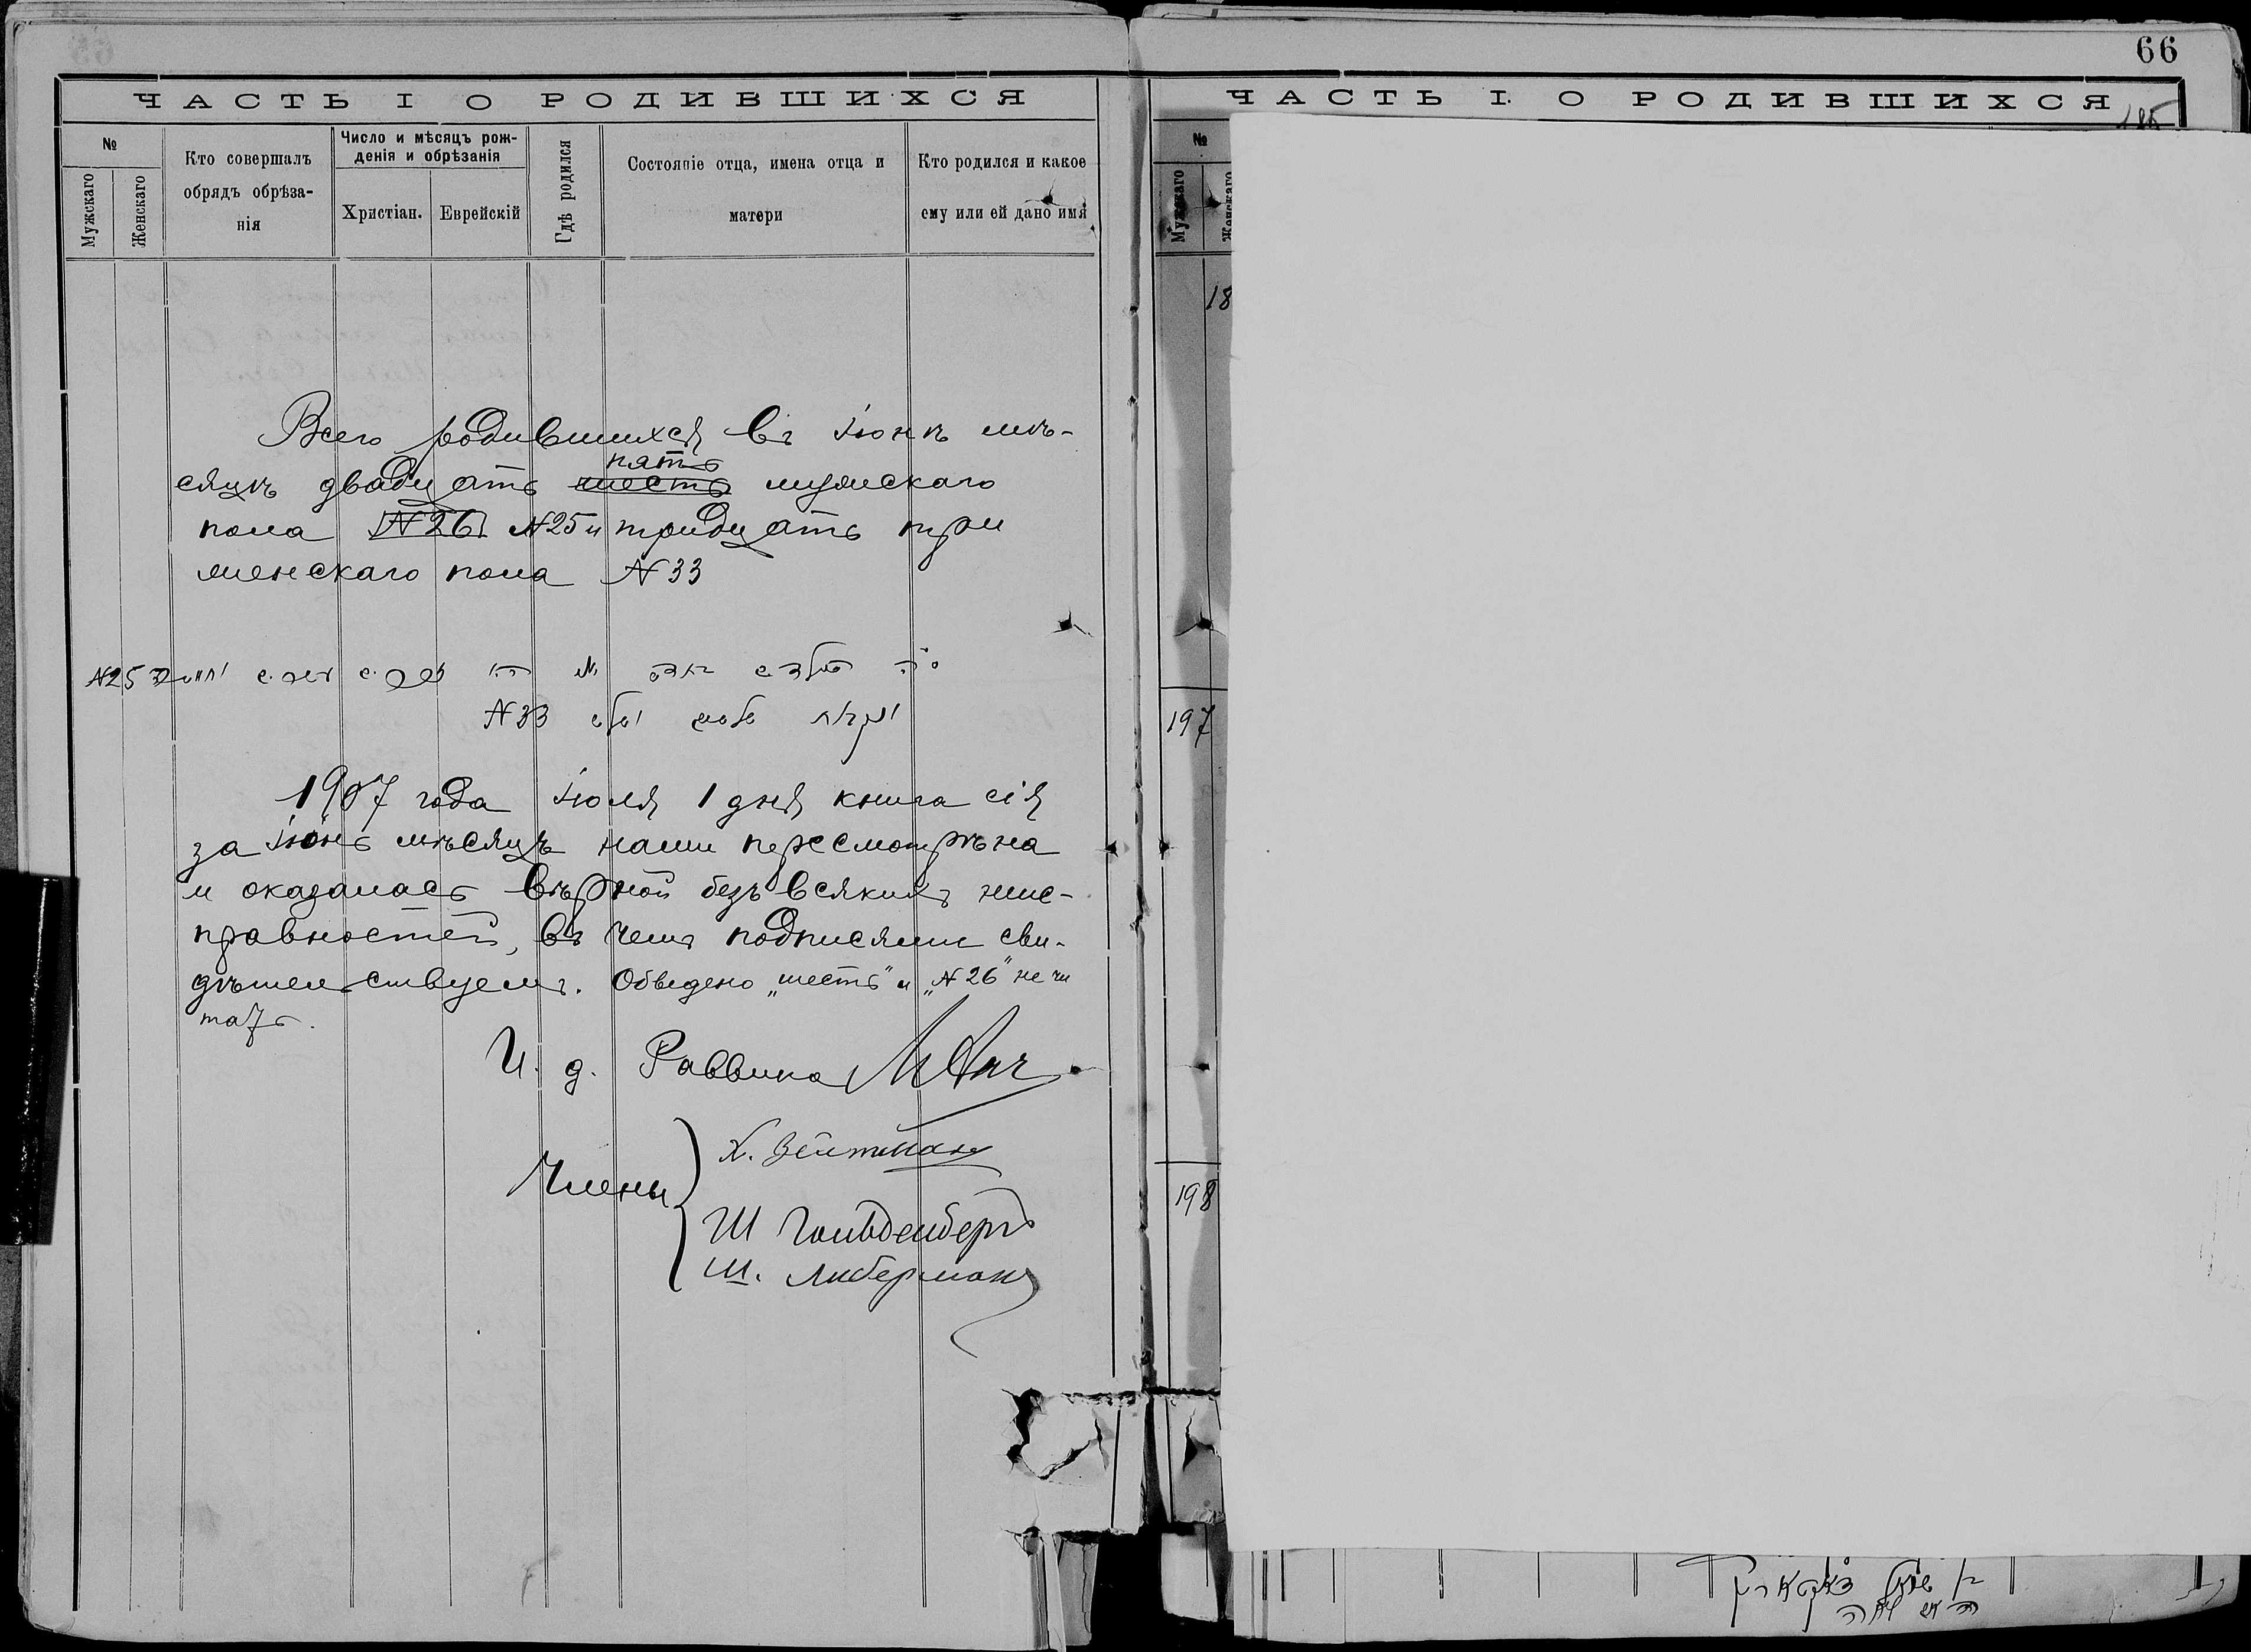 66
ЧАСТЬ I О РОДИВШИХСЯ
№
Мужскаго
Женскаго
Кто совершалъ
обрядъ обрѣза-
нія
Число и мѣсяцъ рож-
денія и обрѣзанія
Христіан.
Еврейскій
Гдѣ родился
Состояніе отца, имена отца и
матери
Кто родился и какое
ему или ей дано имя
Всего родившихся въ Іюнѣ мѣ-
пять
сяцѣ двадцать шесть мужскаго
пола N26 N25 и тридцать три
женскаго пола N 33
N25
N33
1907 года Іюля 1 дня книга сія
за Іюнь мѣсяцъ нами пересмотрѣна
и оказалась вѣрной безъ всякихъ неис-
правностей, въ чемъ подписями сви-
дѣтельствуемъ. Обведено „шесть" и „N 26" не чи
тать.
И. д. Раввина
Члены
Х. Вейтман
Ш Гольденберг
Ш. Либерман
ЧАСТЬ I. О РОДИВШИХСЯ
185
№
Мужскаго
Женскаго
18
197
198